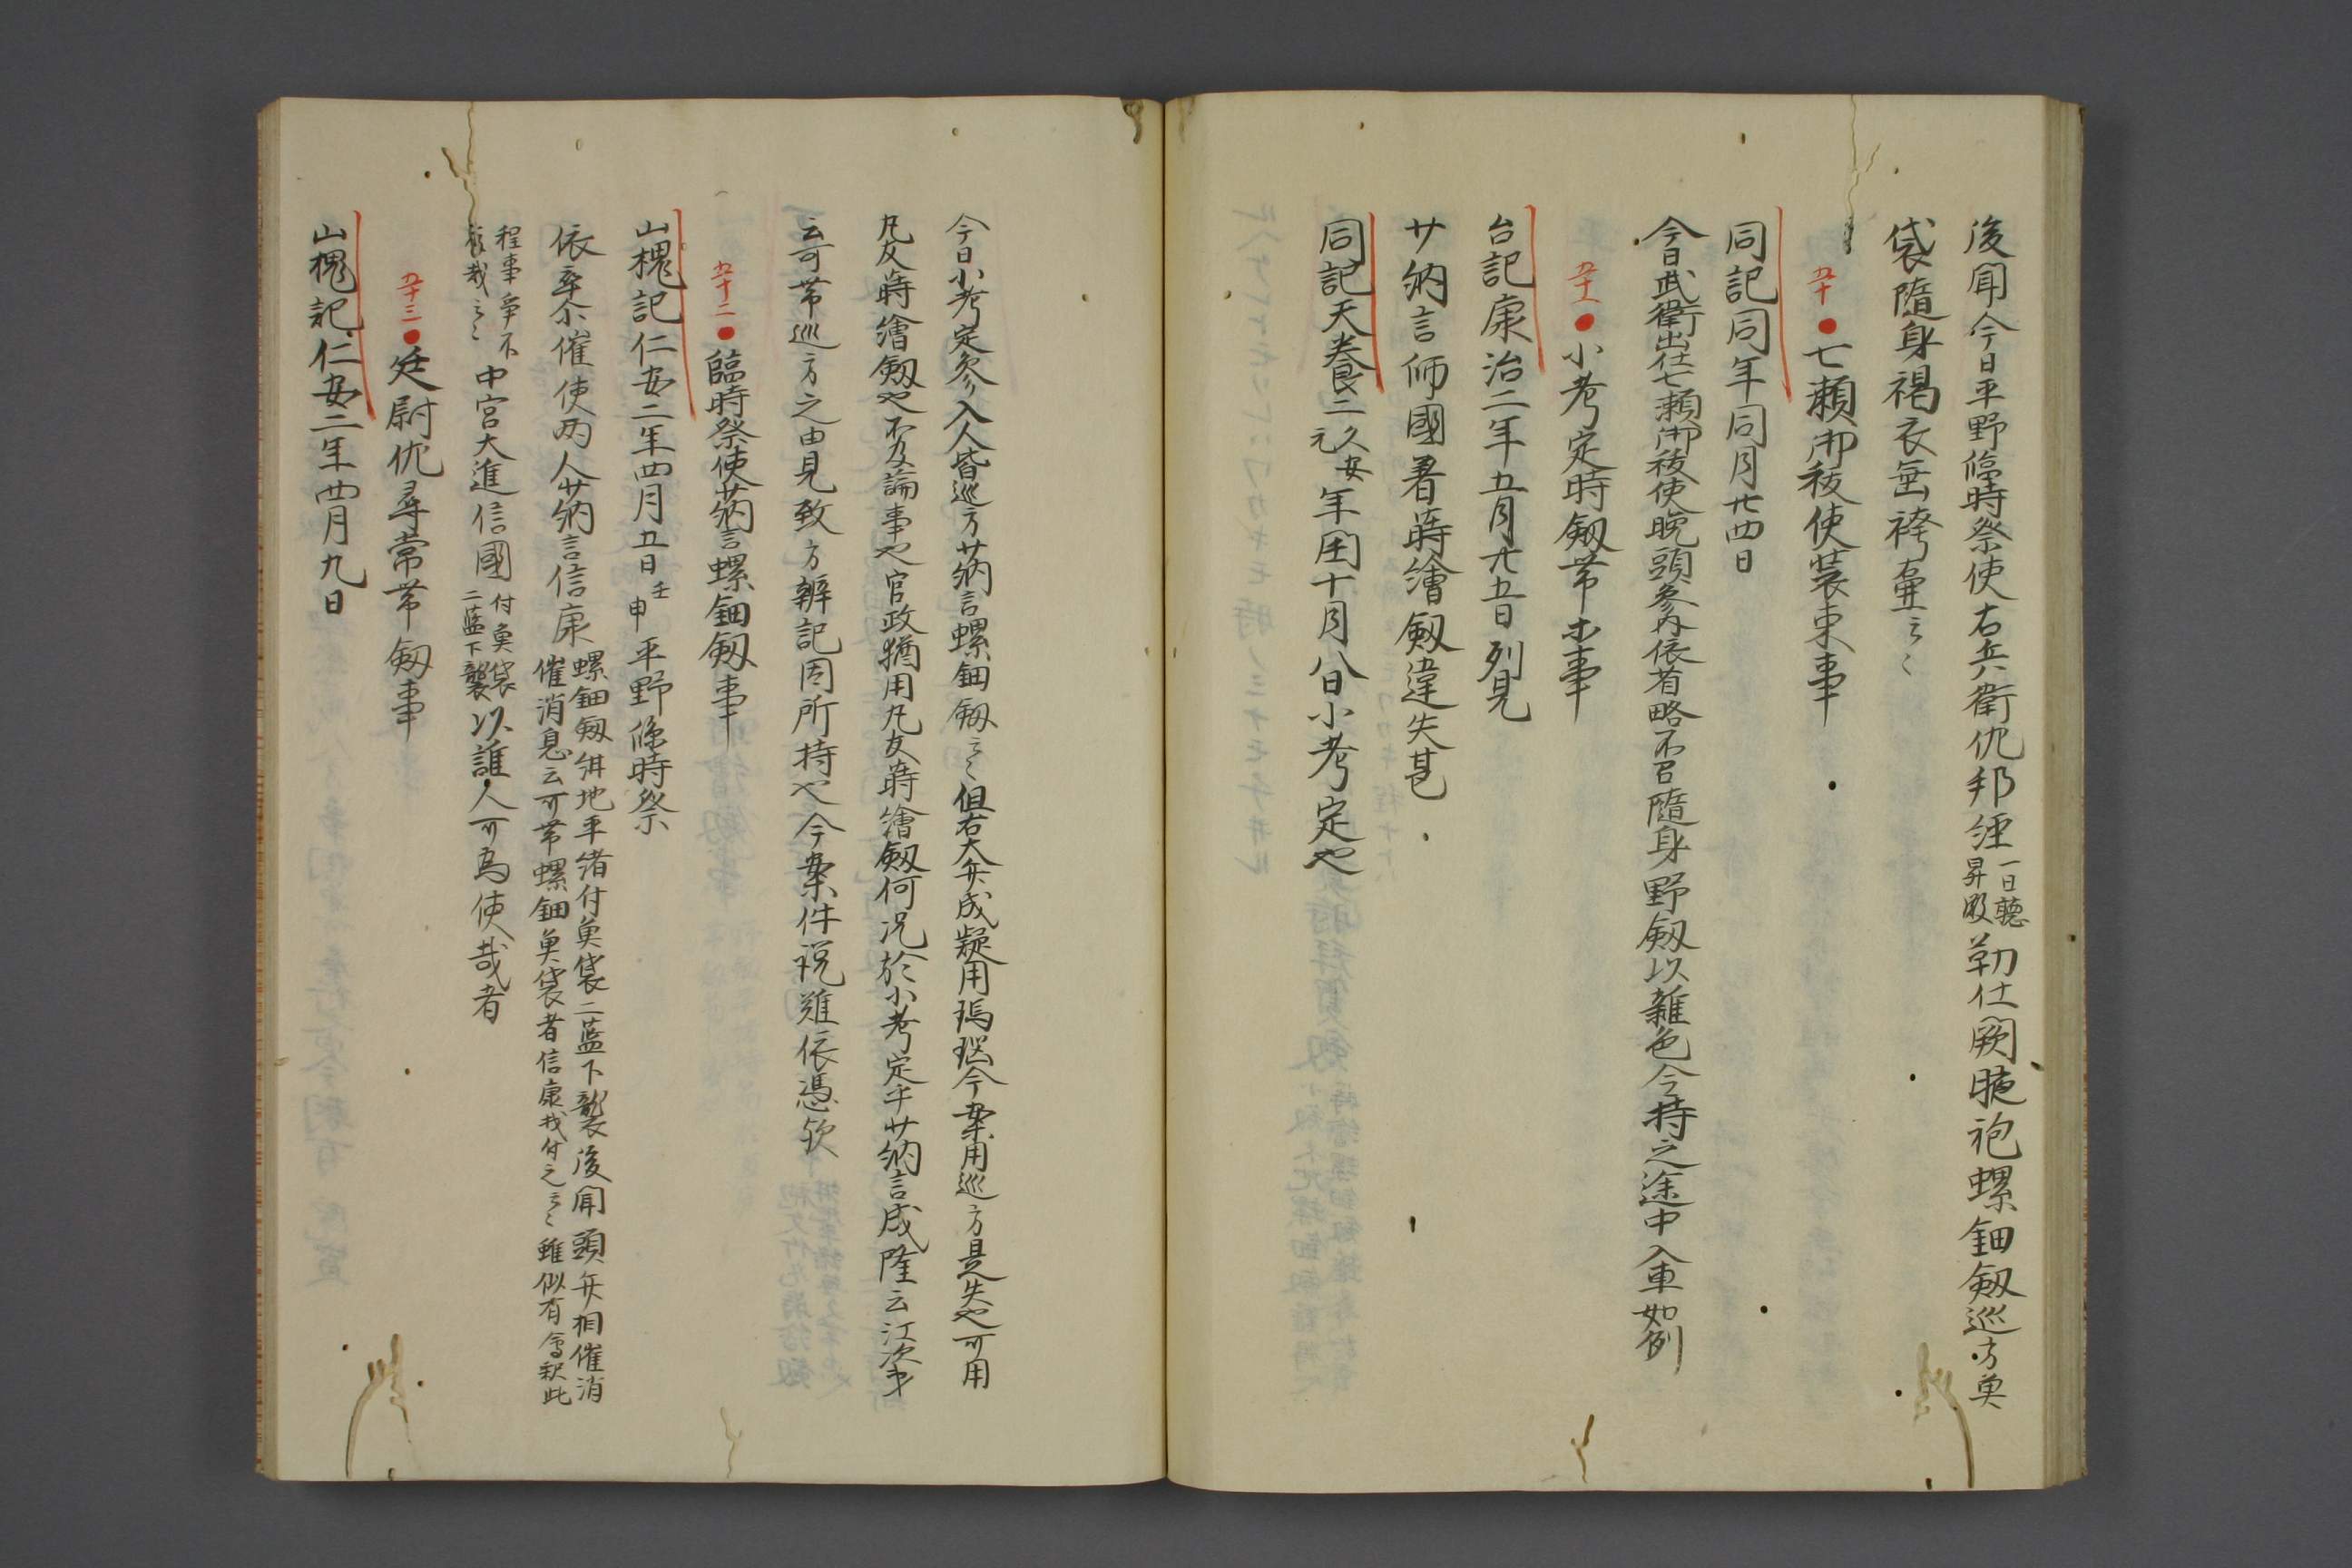 後聞今日平野臨時祭使右兵衛佐邦経一日聴昇殿勤仕闕腋袍螺鈿釼巡方魚
袋隨身褐衣壺袴壷云々
五十●七瀬御祓使装束事
同記同年同月廿四日
今日武衛出仕七瀬御祓使晩頭参内依省略不召隨身野釼以雑色令持之途中入車如例
五十一●小考定時釼帯事
台記康治二年五月廿五日列見
少納言師國着蒔繪釼違失甚
同記天養二久安元年閏十月八日小考定也
今日小考定参入人皆巡方少納言螺鈿釼云々但右大弁成疑用瑪瑙今案用巡方是失也可用
丸友蒔繪釼也不及論事也官政猶用丸友蒔繪釼何况於小考定乎少納言成隆云江次第
云可帯巡方之由見致方辨記因所持也今案件説難依憑欤
五十二●臨時祭使少納言螺鈿釼事
山槐記仁安二年四月五日壬申平野臨時祭
依奉尒催使両人少納言信康螺鈿釼紺地平緒付魚袋二藍下襲後聞頭弁相催消
催消息云可帯螺鈿魚袋者信康我付之云々雖似有會釈此
程事争不哉云々中宮大進信國付魚袋二藍下襲以誰人可為使哉者
五十三●廷尉佐尋常帯釼事
山槐記仁安二年四月九日